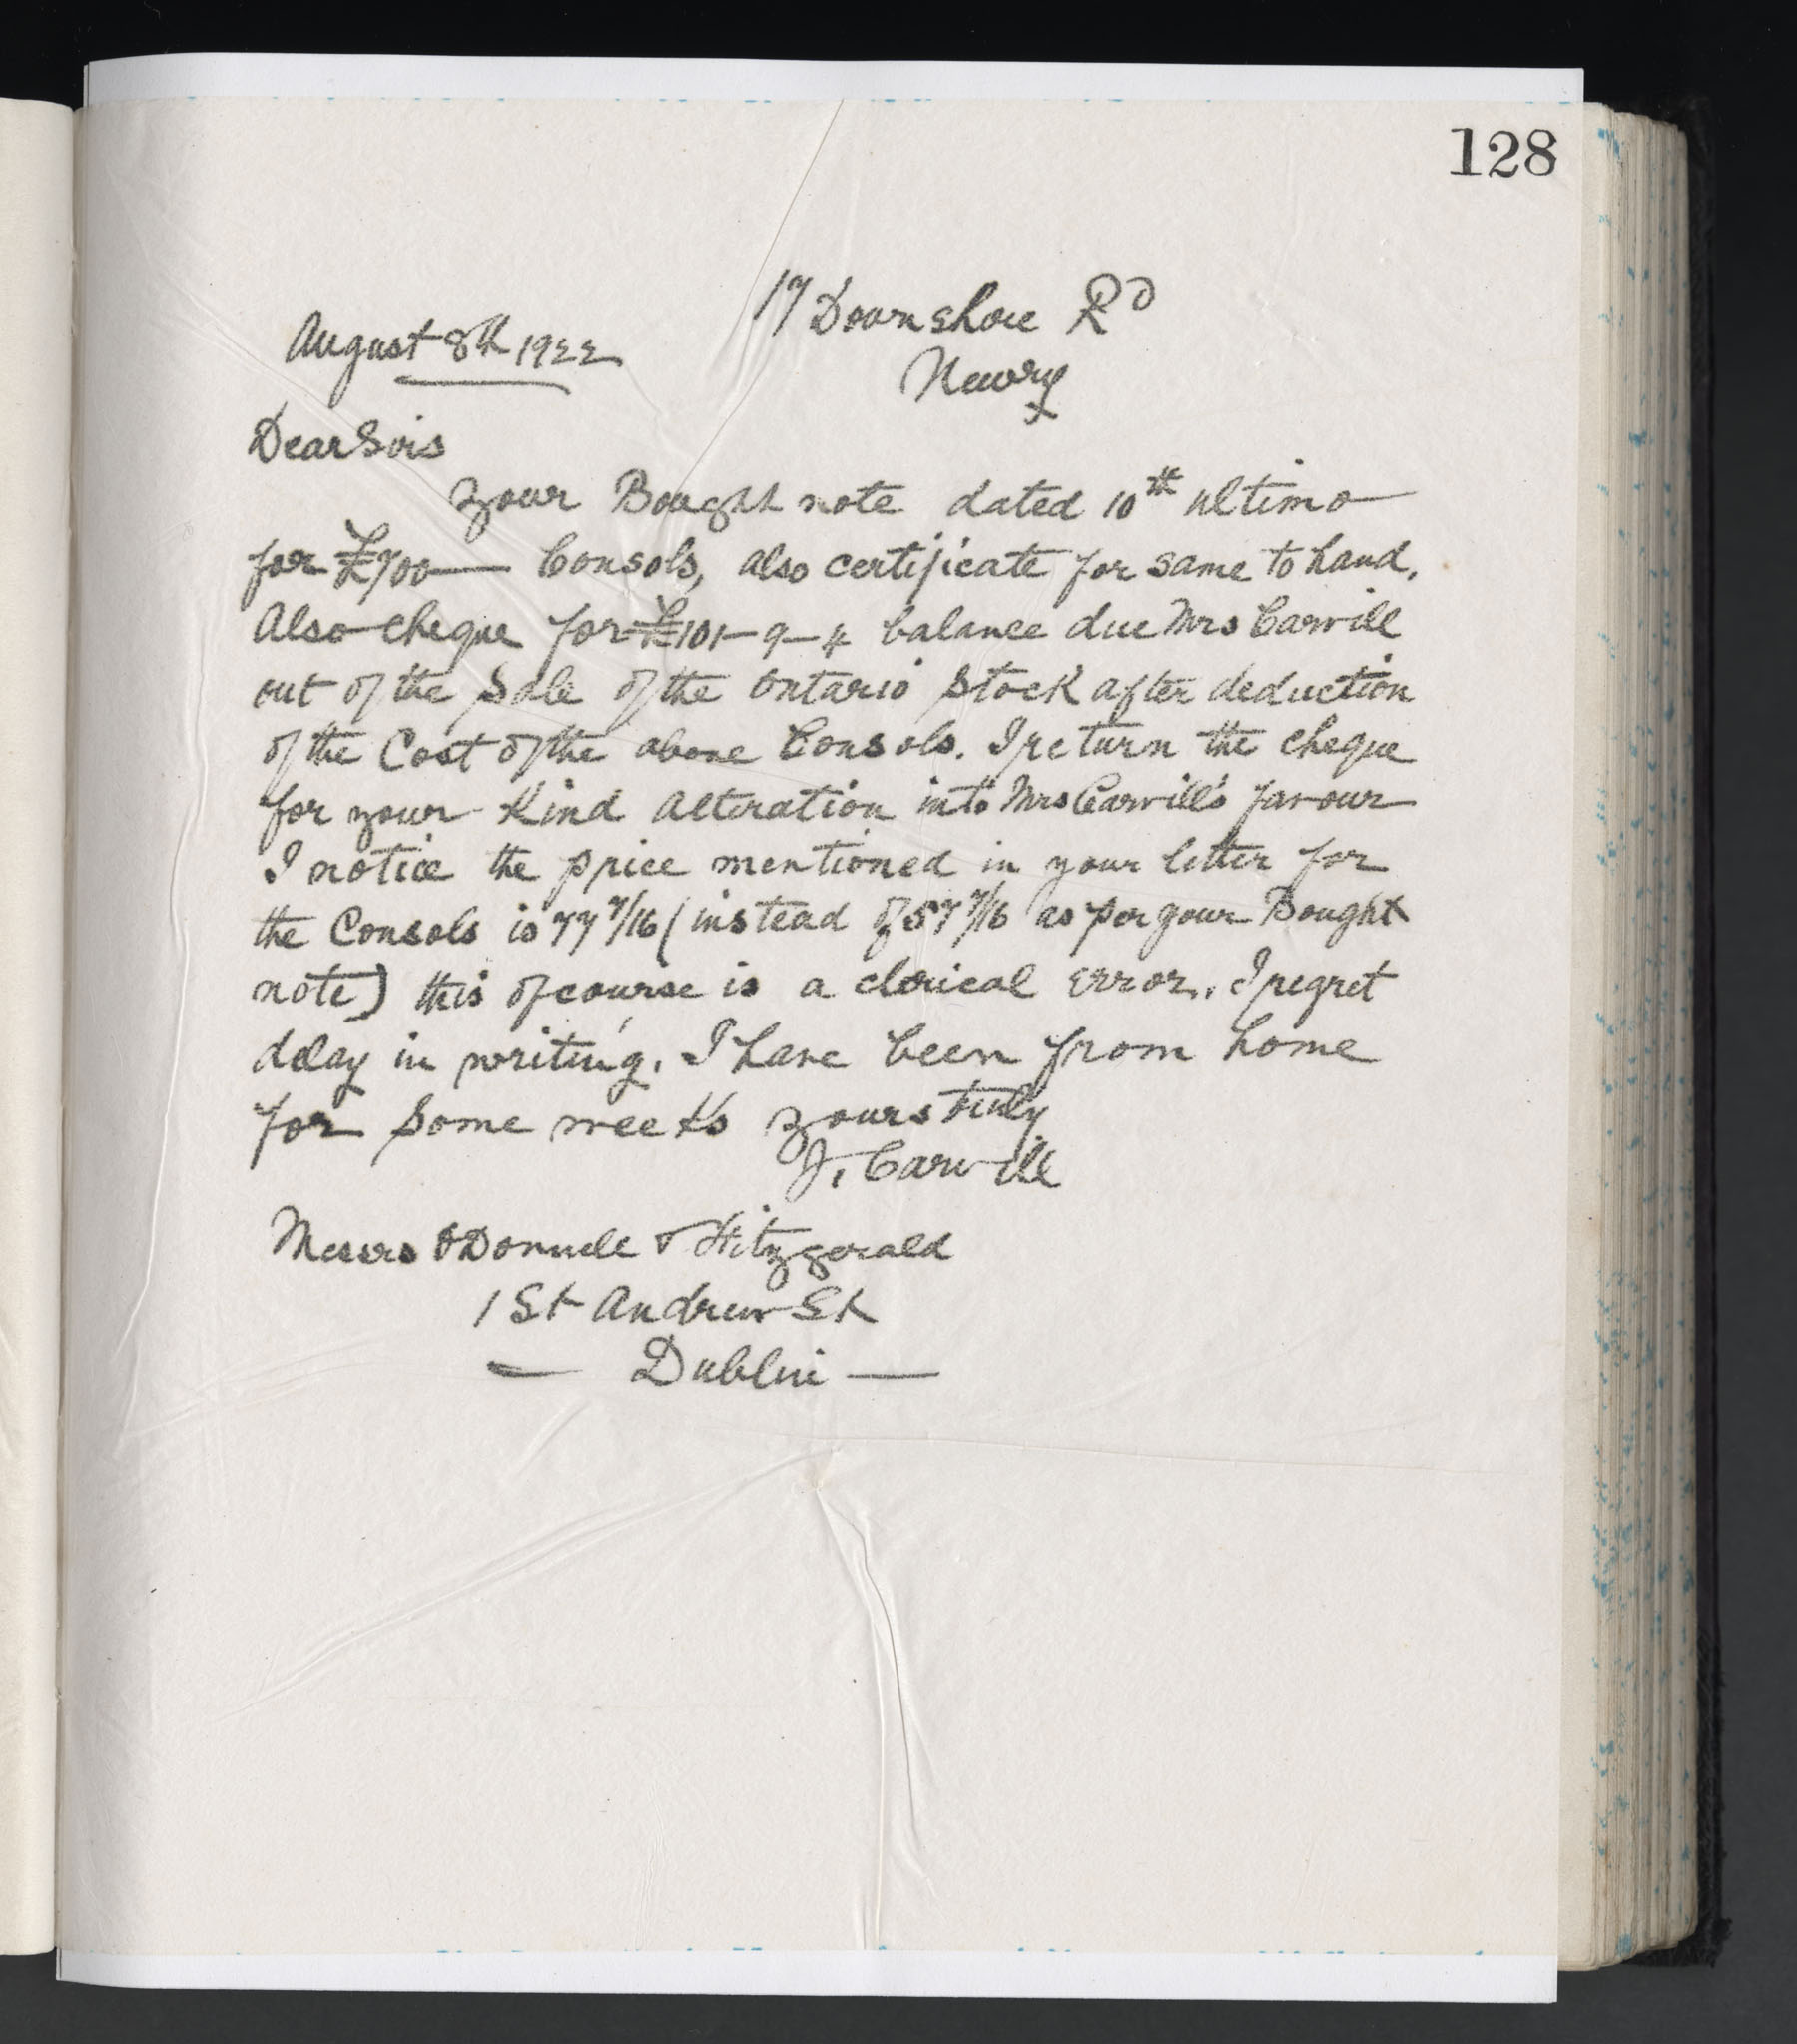 128
17 Downshire Rd
August 8th 1922
Newry
Dear Sirs
Your Bought note dated 10th ultimo
for £700 — Consols, also certificate for same to hand.
Also cheque for £101-9-4 balance due Mrs Carvill
out of the Sale of the Ontario Stock after deduction
of the Cost of the above Consols. I return the cheque
for your Kind alteration into Mrs Carvill's favour
I notice the price mentioned in your letter for
the Consols is 77 7/16 (instead of 57 7/16 as per your Bought
note) this of course is a clerical error. I regret
delay in writing. I have been from home
for some weeks Yours truly
J. Carvill
Messrs O'Donnell & Fitzgerald
1 St Andrew St
— Dublin —